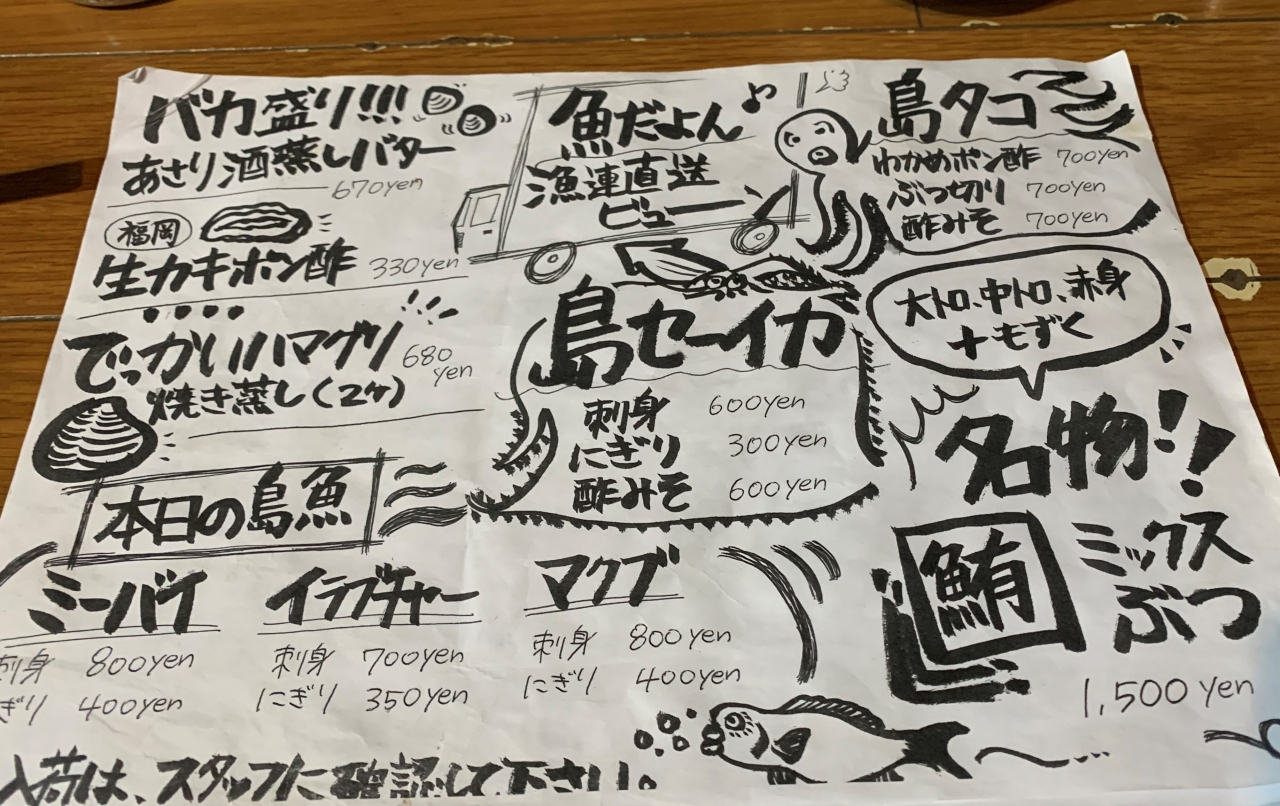 バカ盛り!!!
あさり酒蒸しバター
670yen
福岡
生カキポン酢 330yen
でっかいハマグリ 680yen
焼き蒸し(2ヶ)
魚だよん♪
漁連直送
ビューーン
島タコ
わかめポン酢 700yen
ぶつ切り 700yen
酢みそ 700yen
島セーイカ
刺身 600yen
にぎり 300yen
酢みそ 600yen
大トロ、中トロ、赤身
+もずく
名物!!
鮪 ミックス
ぶつ
1,500yen
本日の島魚
ミーバイ
刺身 800yen
ぎり 400yen
イラブチャー
刺身 700yen
にぎり 350yen
マクブ
刺身 800yen
にぎり 400yen
入荷は、スタッフに確認して下さい。